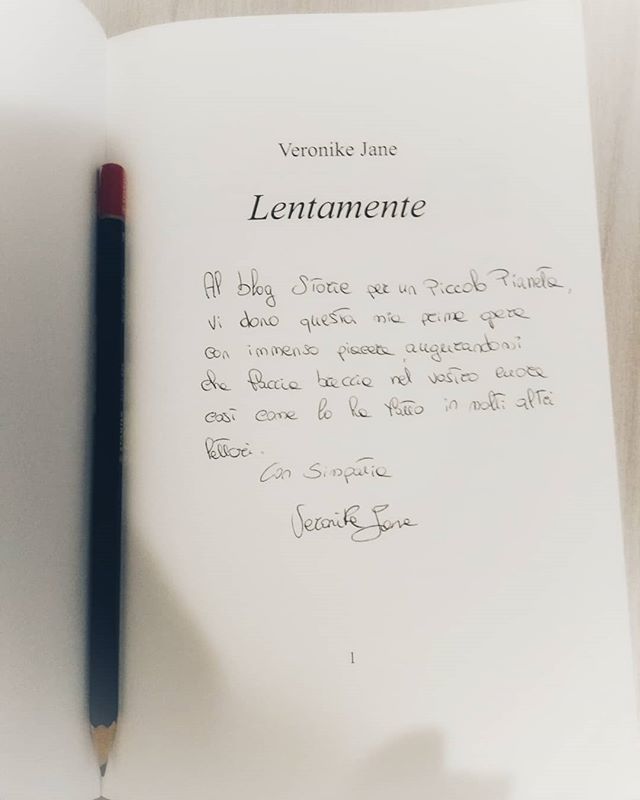 Veronike Jane
Lentamente
Al blog Storie per un Piccolo Pianeta,
vi dono questa mia prima opera
con immenso piacere, augurandomi
che faccia breccia nel vostro cuore
così come lo ha fatto in molti altri
lettori.
Con Simpatia
Veronike Jane
1